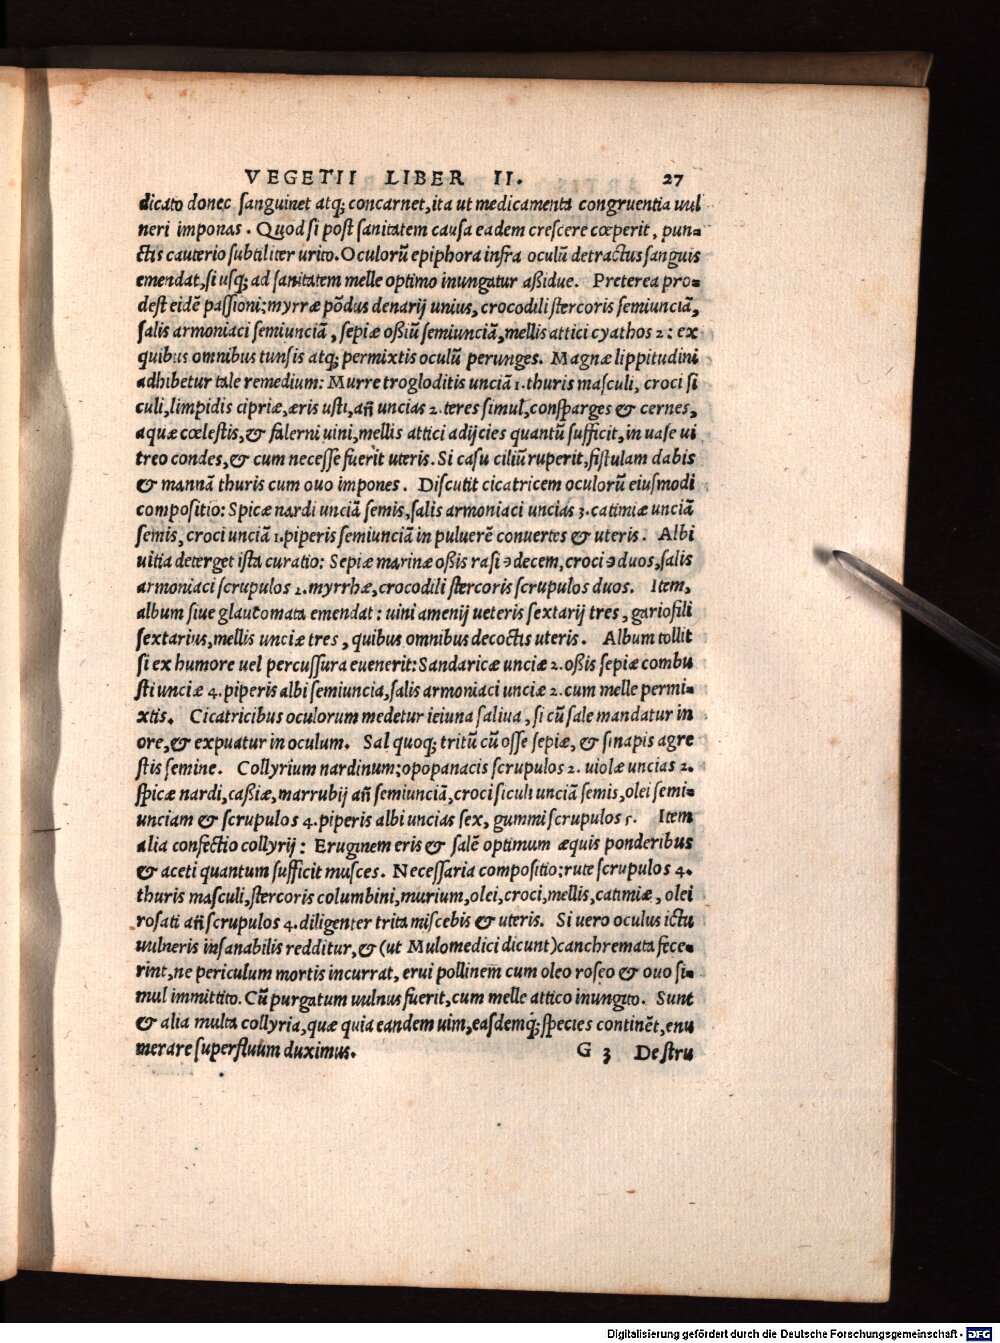 VEGETII LIBER II. 27
dicato donec sanguinet atq; concarnet, ita ut medicamenta congruentia uul
neri imponas. Quod si post sanitatem causa eadem crescere cœperit, pun-
ctis cauterio subtiliter urito. Oculorũ epiphora infra oculũ detractus sanguis
emendat, si usq; ad sanitatem melle optimo inungatur aßidue. Preterea pro-
dest eidẽ passioni: myrræ põdus denarij unius, crocodili stercoris semiunciã,
salis armoniaci semiunciã, sepiæ oßiũ semiunciã, mellis attici cyathos 2: ex
quibus omnibus tunsis atq; permixtis oculũ perunges. Magnæ lippitudini
adhibetur tale remedium: Murre trogloditis unciã 1. thuris masculi, croci si
culi, limpidis cipriæ, æris usti, añ uncias 2. teres simul, consparges & cernes,
aquæ cœlestis, & falerni uini, mellis attici adijcies quantũ sufficit, in uase ui
treo condes, & cum necesse fuerit uteris. Si casu ciliũ ruperit, fistulam dabis
& mannã thuris cum ouo impones. Discutit cicatricem oculorũ eiusmodi
compositio: Spicæ nardi unciã semis, salis armoniaci uncias 3. catimiæ unciã
semis, croci unciã 1. piperis semiunciã in puluerẽ conuertes & uteris. Albi
uitia deterget ista curatio: Sepiæ marinæ oßis rasi ℈ decem, croci ℈ duos, salis
armoniaci scrupulos 2. myrrhæ, crocodili stercoris scrupulos duos. Item,
album siue glautomata emendat: uini amenij ueteris sextarij tres, gariofili
sextarius, mellis unciæ tres, quibus omnibus decoctis uteris. Album tollit
si ex humore uel percussura euenerit: Sandaricæ unciæ 2. oßis sepiæ combu
sti unciæ 4. piperis albi semiuncia, salis armoniaci unciæ 2. cum melle permi-
xtis. Cicatricibus oculorum medetur ieiuna saliua, si cũ sale mandatur in
ore, & expuatur in oculum. Sal quoq; tritũ cũ osse sepiæ, & sinapis agre
stis semine. Collyrium nardinum: opopanacis scrupulos 2. uiolæ uncias 2.
spicæ nardi, caßiæ, marrubij añ semiunciã, croci siculi unciã semis, olei semi-
unciam & scrupulos 4. piperis albi uncias sex, gummi scrupulos 5. Item
alia confectio collyrij: Eruginem eris & salẽ optimum æquis ponderibus
& aceti quantum sufficit misces. Necessaria compositio: rute scrupulos 4.
thuris masculi, stercoris columbini, murium, olei, croci, mellis, catimiæ, olei
rosati añ scrupulos 4. diligenter trita miscebis & uteris. Si uero oculus ictu
uulneris insanabilis redditur, & (ut Mulomedici dicunt) canchremata fece-
rint, ne periculum mortis incurrat, erui pollinem cum oleo roseo & ouo si-
mul immittito. Cũ purgatum uulnus fuerit, cum melle attico inungito. Sunt
& alia multa collyria, quæ quia eandem uim, easdemq; species continẽt, enu
merare superfluum duximus. G 3 De stru
Digitalisierung gefördert durch die Deutsche Forschungsgemeinschaft - DFG